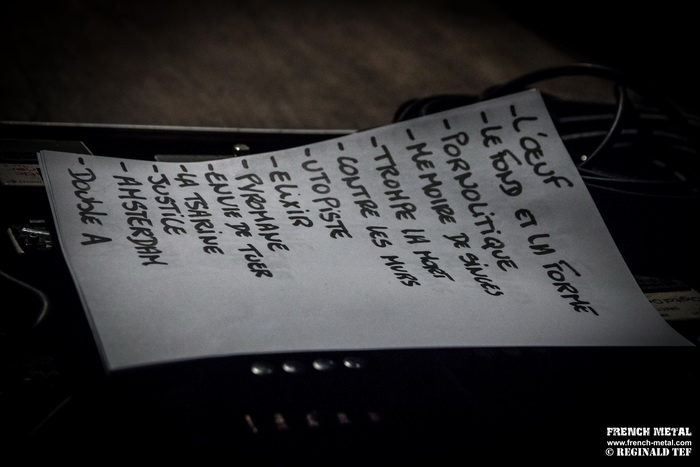 - L'ŒUF
- LE FOND ET LA FORME
- PORNOLITIQUE
- MEMOIRE DE SINGES
- TROMPE LA MORT
- CONTRE LES MURS
- UTOPISTE
- ELIXIR
- PYROMANE
- ENVIE DE TUER
- LA TSARINE
- JUSTICE
- AMSTERDAM
- DOUBLE A
FRENCH METAL
www.french-metal.com
© REGINALD TEF